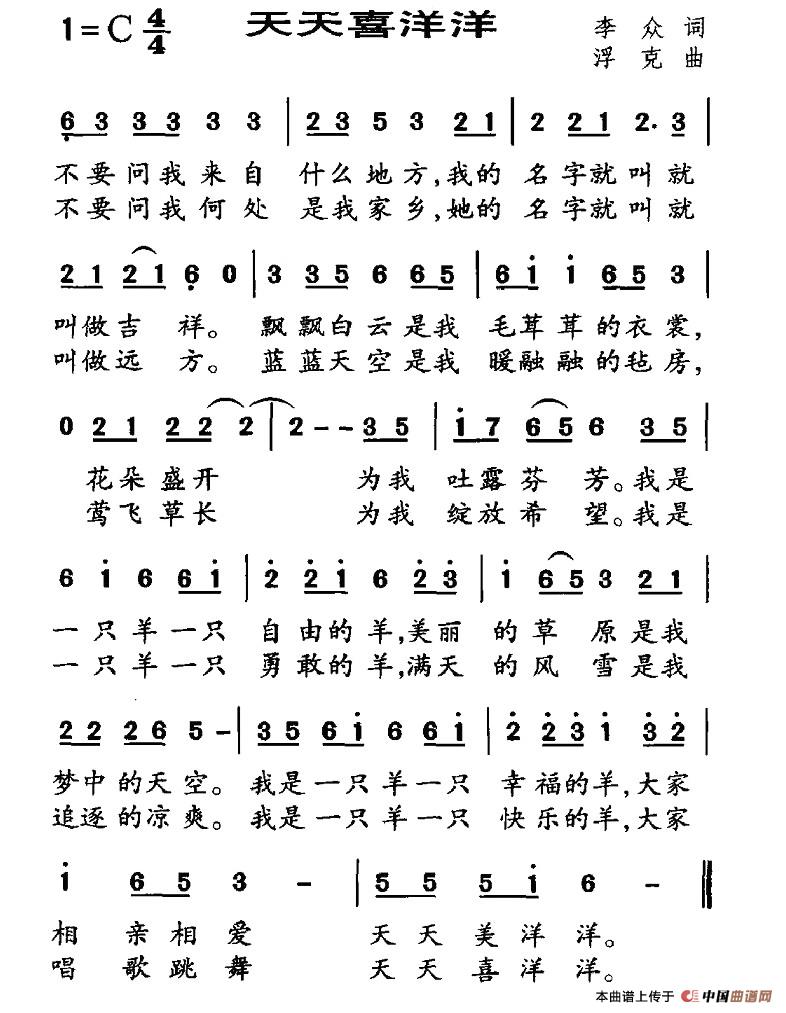 1=C 4/4 天天喜洋洋 李众词
浮克曲
6 3 3 3 3 3 | 2 3 5 3 2 1 | 2 2 1 2· 3 |
不要问我来自 什么地方,我的 名字就叫就
不要问我何处 是我家乡,她的 名字就叫就
2 1 2 1 6 0 | 3 3 5 6 6 5 | 6 i i 6 5 3 |
叫做吉祥。 飘飘白云是我 毛茸茸的衣裳,
叫做远方。 蓝蓝天空是我 暖融融的毡房,
0 2 1 2 2 2 | 2 - - 3 5 | i 7 6 5 6 3 5 |
花朵盛开 为我 吐露芬芳。我是
莺飞草长 为我 绽放希望。我是
6 i 6 6 i | 2 2 i 6 2 3 | i 6 5 3 2 1 |
一只羊一只 自由的羊,美丽 的草原是我
一只羊一只 勇敢的羊,满天 的风雪是我
2 2 2 6 5 - | 3 5 6 i 6 6 i | 2 2 3 i 3 2 |
梦中的天空。我是一只羊一只 幸福的羊,大家
追逐的凉爽。我是一只羊一只 快乐的羊,大家
i 6 5 3 - | 5 5 5 i 6 - ‖
相亲相爱 天天美洋洋。
唱歌跳舞 天天喜洋洋。
本曲谱上传于 中国曲谱网